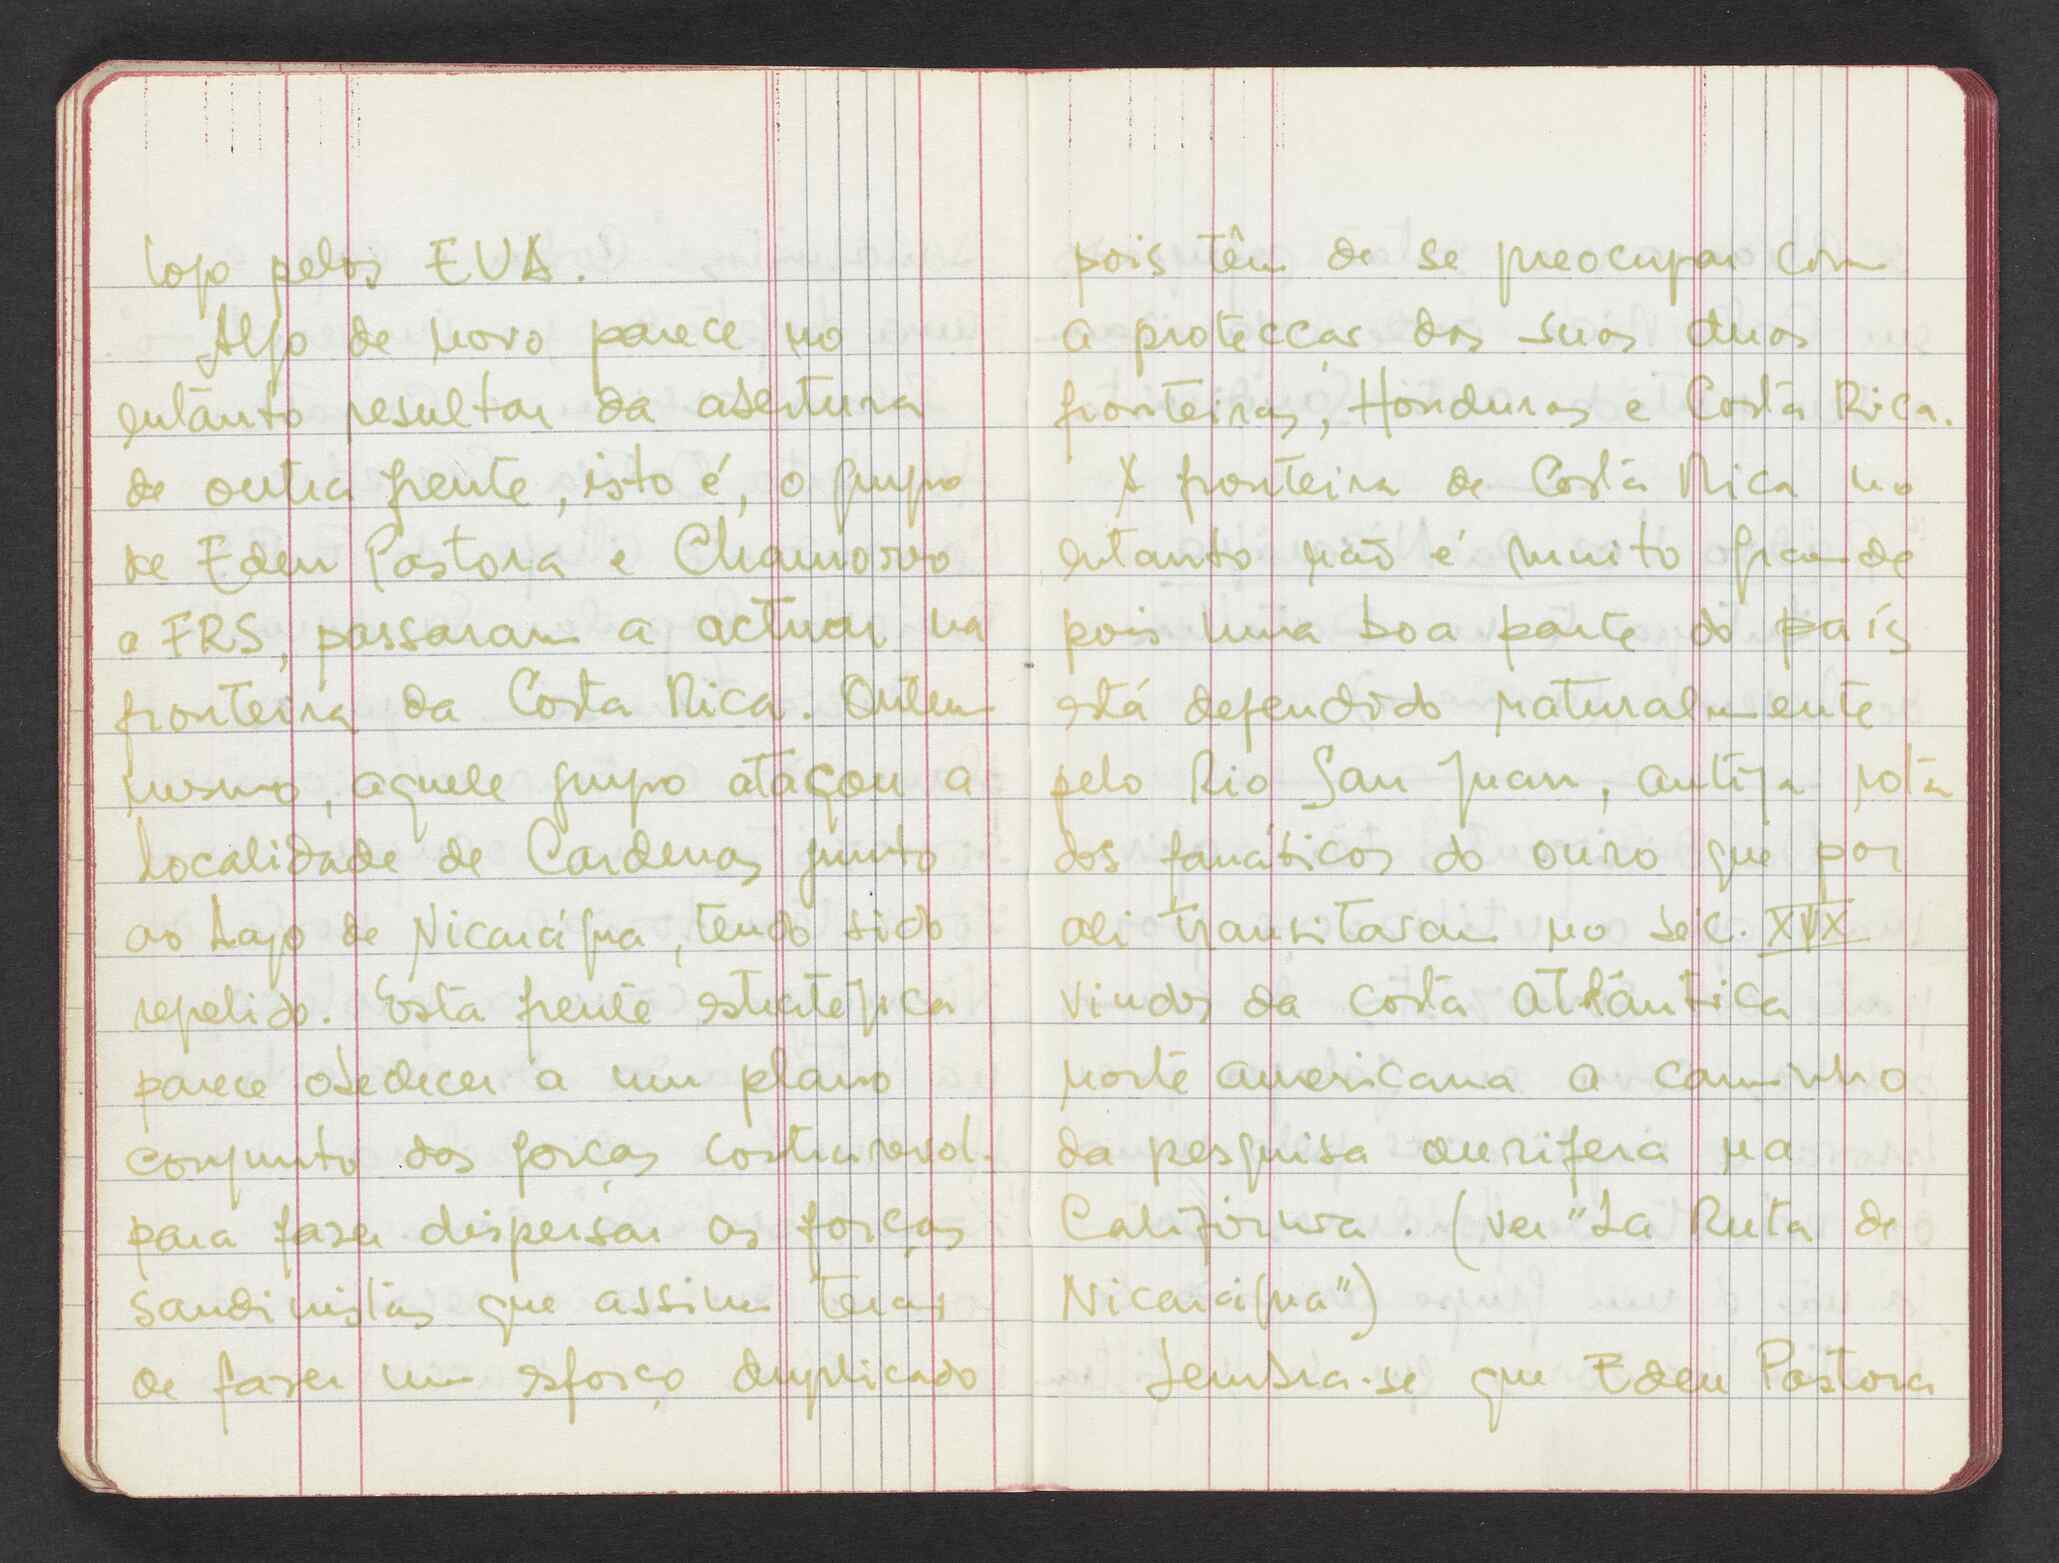 logo pelos EUA.
Algo de novo parece no
entanto resultar da abertura
de outra frente, isto é, o grupo
de Eden Pastora e Chamorro
a FRS, passaram a actuar na
fronteira da Costa Rica. Ontem
mesmo, aquele grupo atacou a
localidade de Cardenas junto
ao Lago de Nicarágua, tendo sido
repelido. Esta frente estratégica
parece obedecer a um plano
conjunto das forças contrarevol.
para fazer dispersar as forças
sandinistas que assim terão
de fazer um esforço duplicado
pois têm de se preocupar com
a protecção das suas duas
fronteiras, Honduras e Costa Rica.
A fronteira de Costa Rica no
entanto não é muito grande
pois uma boa parte do país
está defendido naturalmente
pelo Rio San Juan, antiga rota
dos fanáticos do ouro que por
ali transitaram no séc. XIX
vindos da costa atlântica
norte americana a caminho
da pesquisa aurifera na
California. (ver "La Ruta de
Nicarágua")
Lembra-se que Eden Pastora